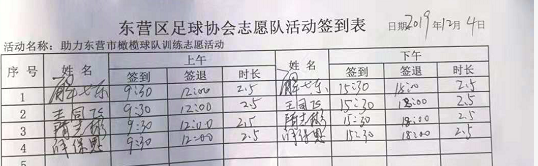 东营区足球协会志愿队活动签到表 日期2019年12月4日
活动名称：助力东营市橄榄球队训练志愿活动
序号 姓名 上午 姓名 下午
签到 签退 时长 签到 签退 时长
1 9:30 12:00 2.5 15:30 18:00 2.5
2 王同 9:30 12:00 2.5 王同 15:30 18:00 2.5
3 9:30 12:00 2.5 15:30 18:00 2.5
4 9:30 12:00 2.5 15:30 18:00 2.5